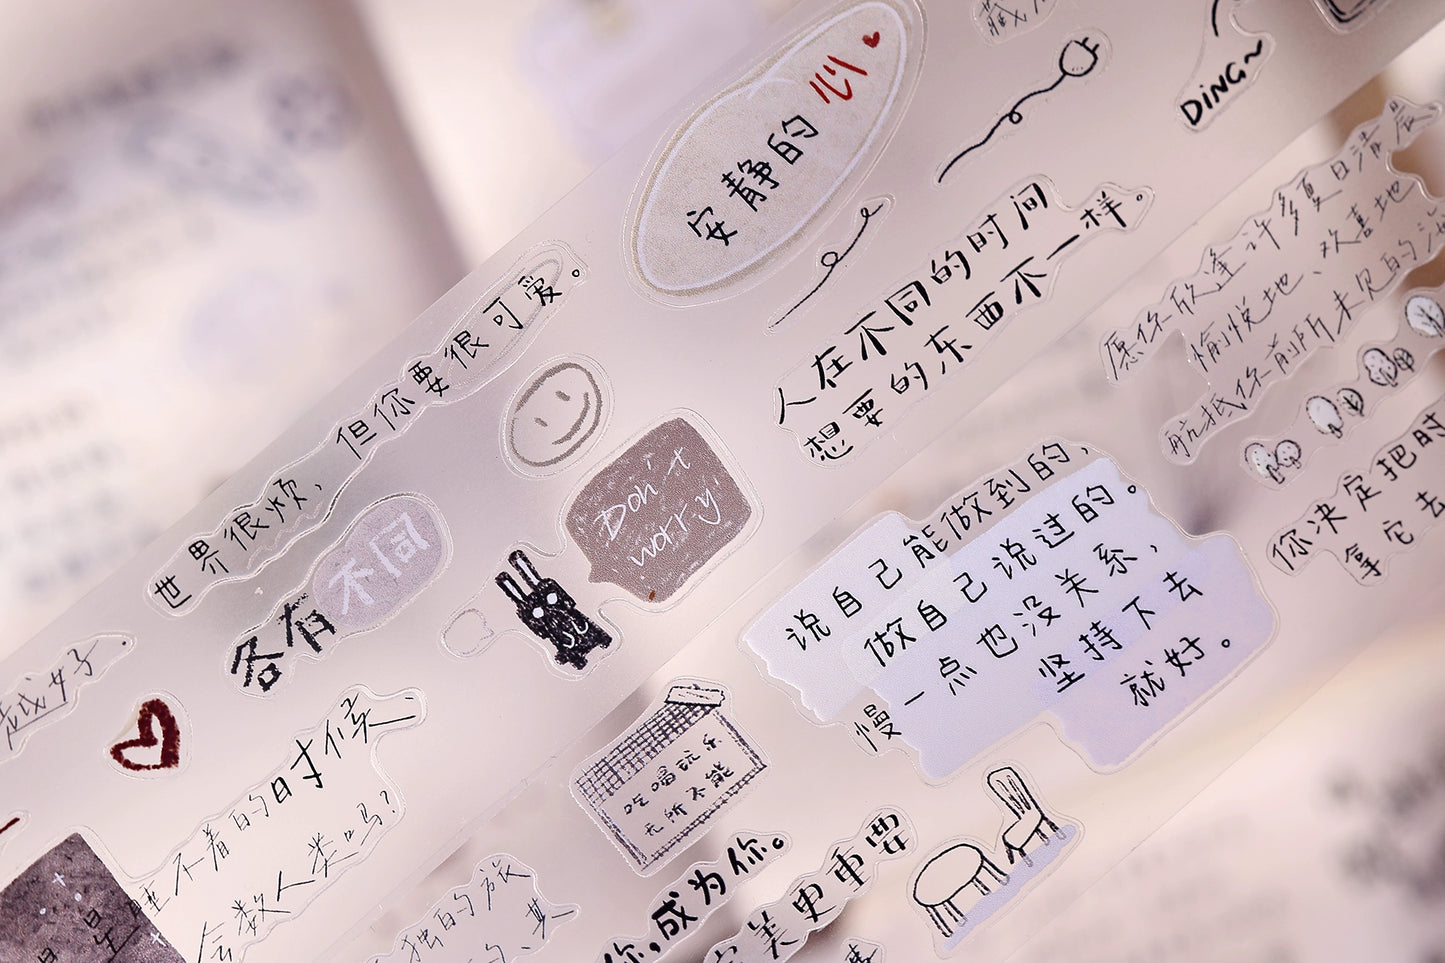 安静的心
DING~
人在不同的时间
想要的东西不一样。
愿你欣逢许多夏日清晨
愉悦地、欢喜地
航抵你前所未见的
世界很烦,但你要很可爱。
各有不同
Don't
worry
说自己能做到的,
做自己说过的。
慢一点也没关系,
坚持下去
就好。
你决定把时
拿它去
睡不着的时候、
会数人类吗?
吃喝玩乐
无所不能
你,成为你。
美更重要
独的旅
的、其